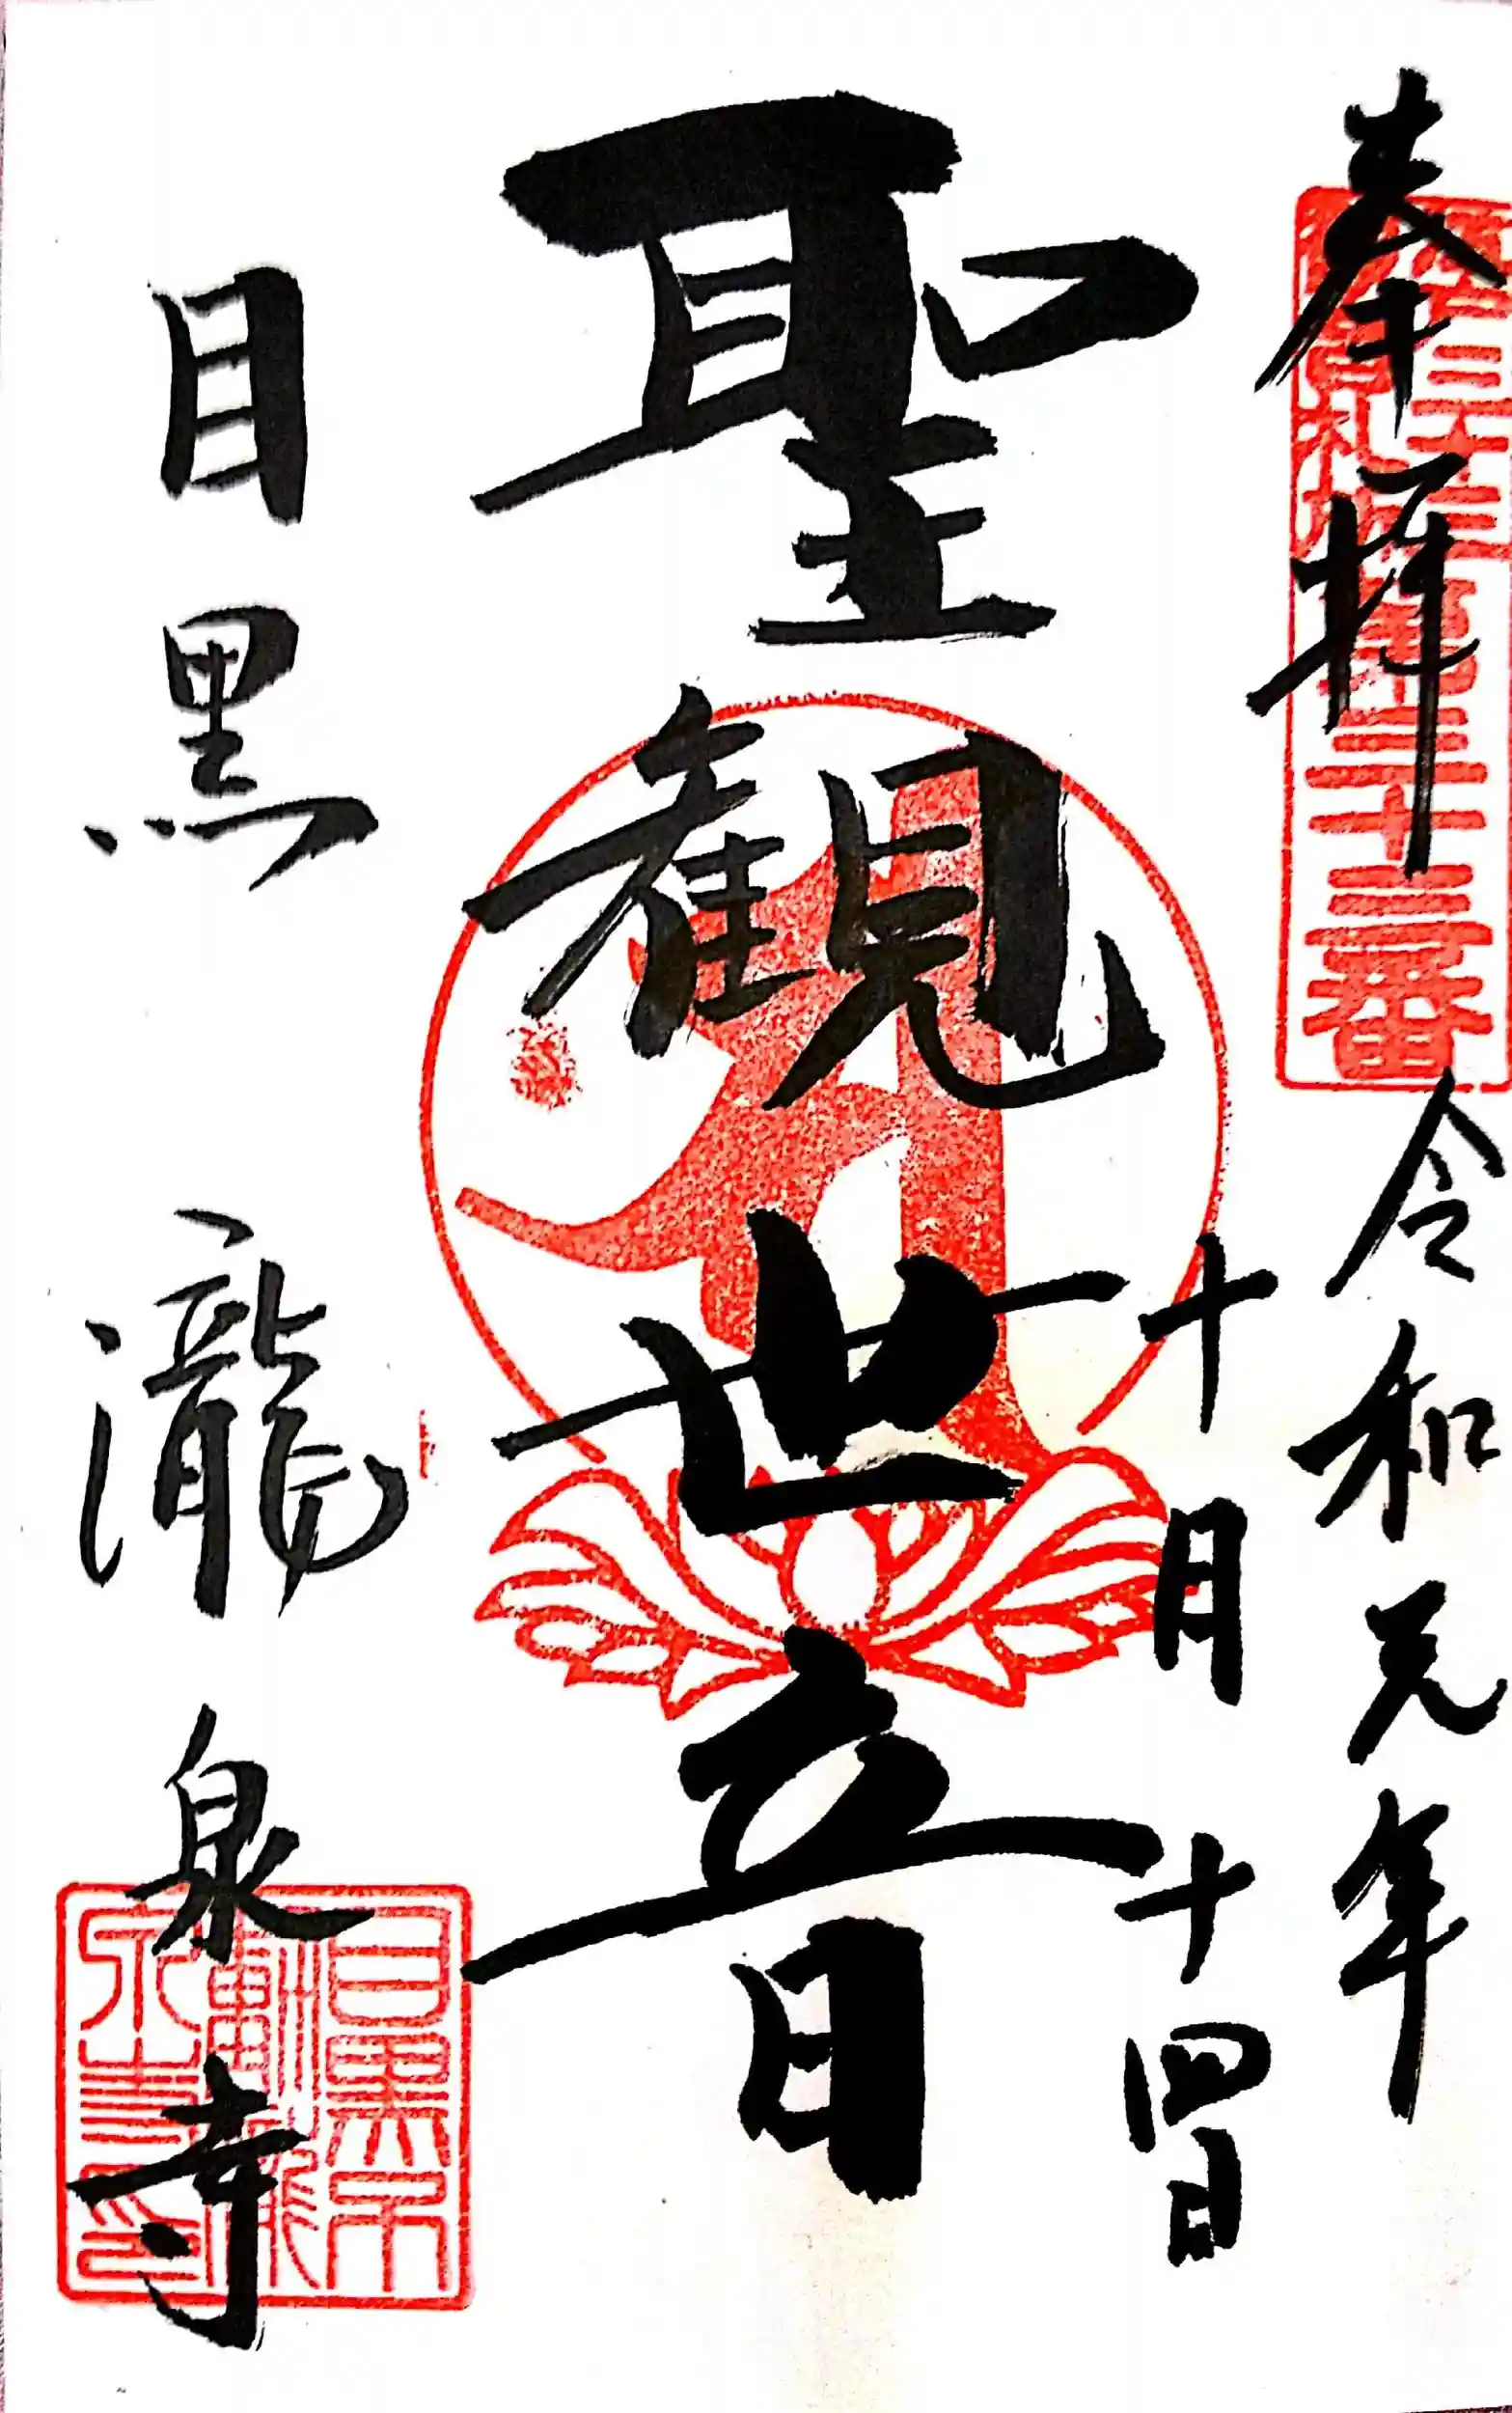 奉拝
令和元年
十月十四日
聖観世音
目黒 瀧泉寺
第三十三番